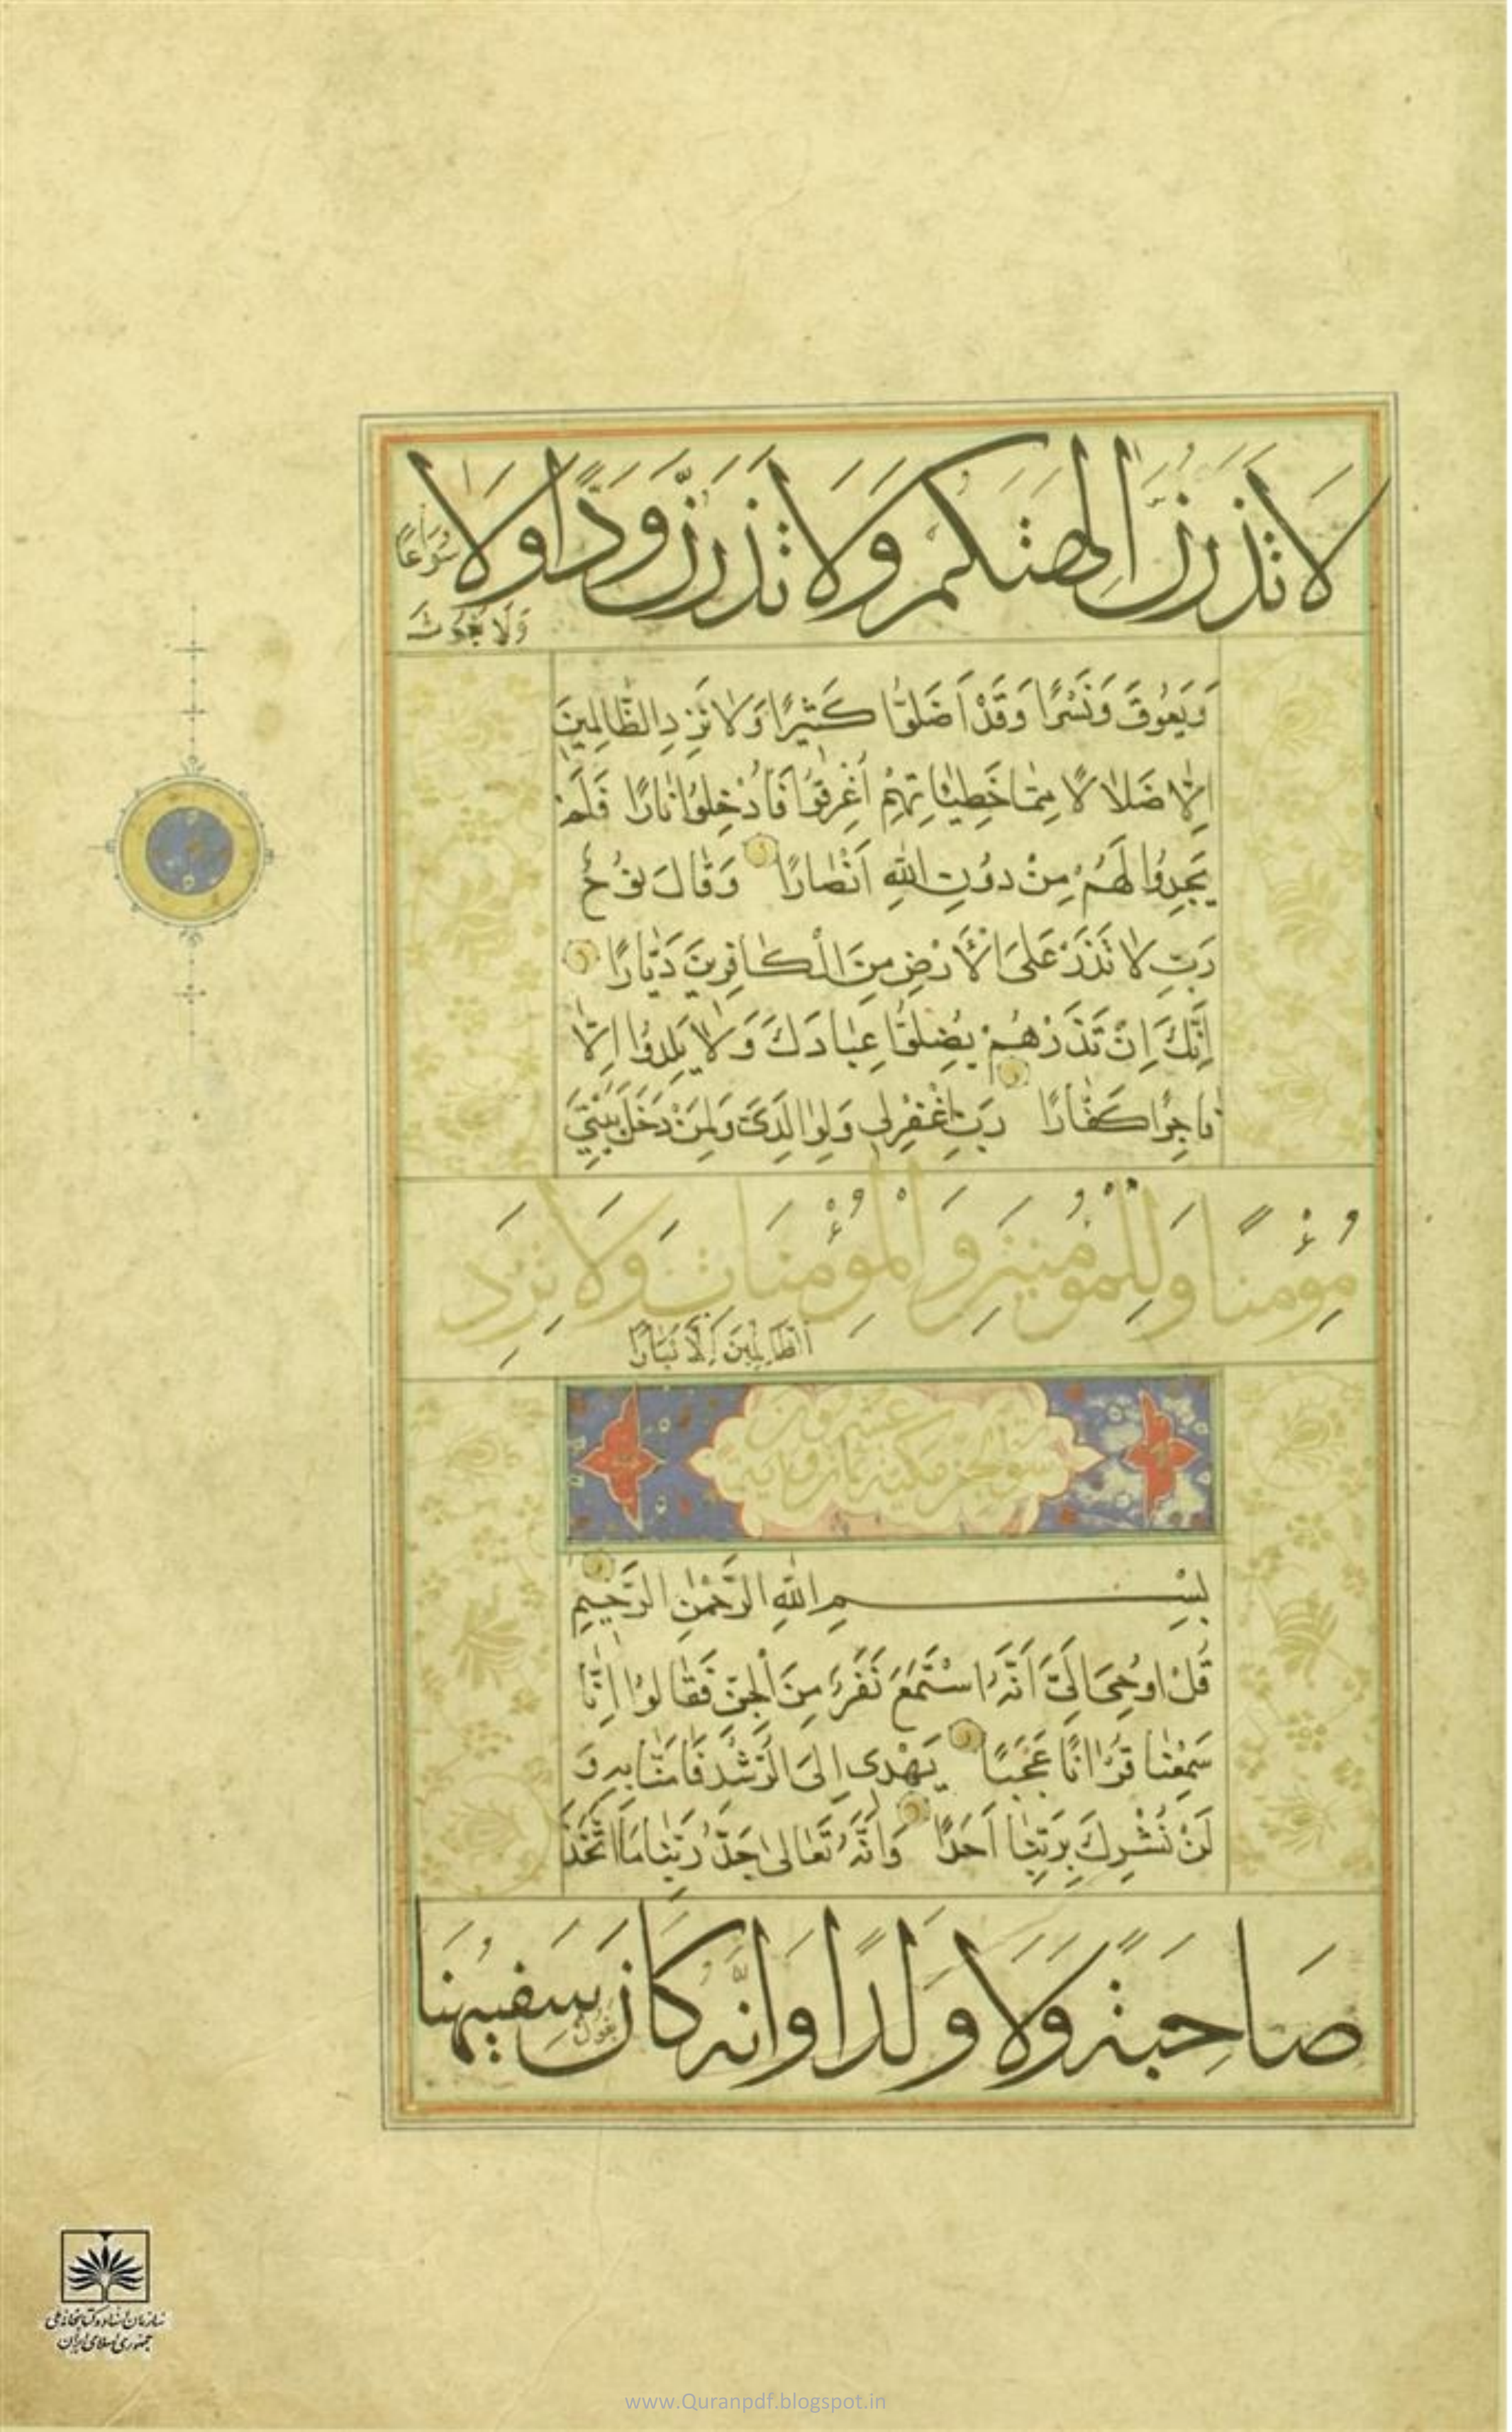 لا تذرن الهتكم ولا تذرن ودا ولا سواعا
ولا يغوث
وَيَعُوقَ وَنَسْرًا وَقَدْ اَضَلُّوا كَثيرًا وَلَا تَزِدِ الظَّالِمينَ
اِلَّا ضَلَالًا مِمَّا خَطيئَاتِهِمْ اُغْرِقُوا فَاُدْخِلُوا نَارًا فَلَمْ
يَجِدُوا لَهُمْ مِنْ دُونِ اللهِ اَنْصَارًا وَقَالَ نُوحٌ
رَبِّ لَا تَذَرْ عَلَى الْأَرْضِ مِنَ الْكَافِرينَ دَيَّارًا
اِنَّكَ اِنْ تَذَرْهُمْ يُضِلُّوا عِبَادَكَ وَلَا يَلِدُوا اِلَّا
فَاجِرًا كَفَّارًا رَبِّ اغْفِرْلى وَلِوَالِدَىَّ وَلِمَنْ دَخَلَ بَيْتِىَ
مُؤْمِنًا وَلِلْمُؤْمِنِينَ وَالْمُؤْمِنَاتِ وَلَا تَزِدِ
الظَّالِمِينَ اِلَّا تَبَارًا
سورة الجن مكية ثمان وعشرون اية
بِسْمِ اللهِ الرَّحْمٰنِ الرَّحيمِ
قُلْ اُوحِىَ اِلَىَّ اَنَّهُ اسْتَمَعَ نَفَرٌ مِنَ الْجِنِّ فَقَالُوا اِنَّا
سَمِعْنَا قُرْاٰنًا عَجَبًا يَهْدى اِلَى الرُّشْدِ فَاٰمَنَّا بِهِ وَ
لَنْ نُشْرِكَ بِرَبِّنَا اَحَدًا وَاَنَّهُ تَعَالىٰ جَدُّ رَبِّنَا مَا اتَّخَذَ
صَاحِبَةً وَلَا وَلَدًا وَاَنَّهُ كَانَ يَقُولُ سَفِيهُنَا
سازمان اسناد و کتابخانه ملی
جمهوری اسلامی ایران
www.Quranpdf.blogspot.in